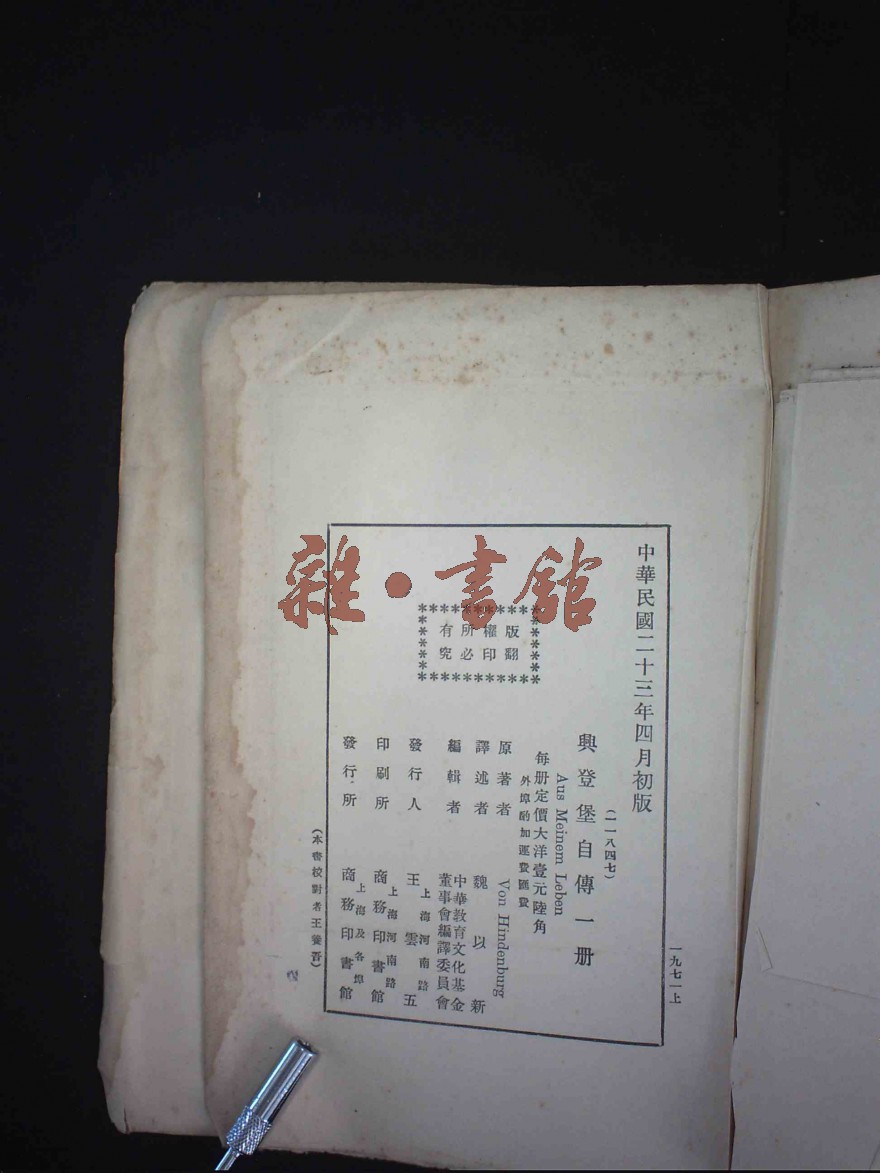 雜·書館
中華民國二十三年四月初版
(一一八四七)
興登堡自傳一册
Aus Meinem Leben
每册定價大洋壹元陸角
外埠酌加運費匯費
版權所有
翻印必究
原著者 Von Hindenburg
譯述者 魏以新
編輯者 中華教育文化基金董事會編譯委員會
發行人 上海河南路 王雲五
印刷所 上海河南路 商務印書館
發行所 上海及各埠 商務印書館
(本書校對者王養吾)
一九七一上